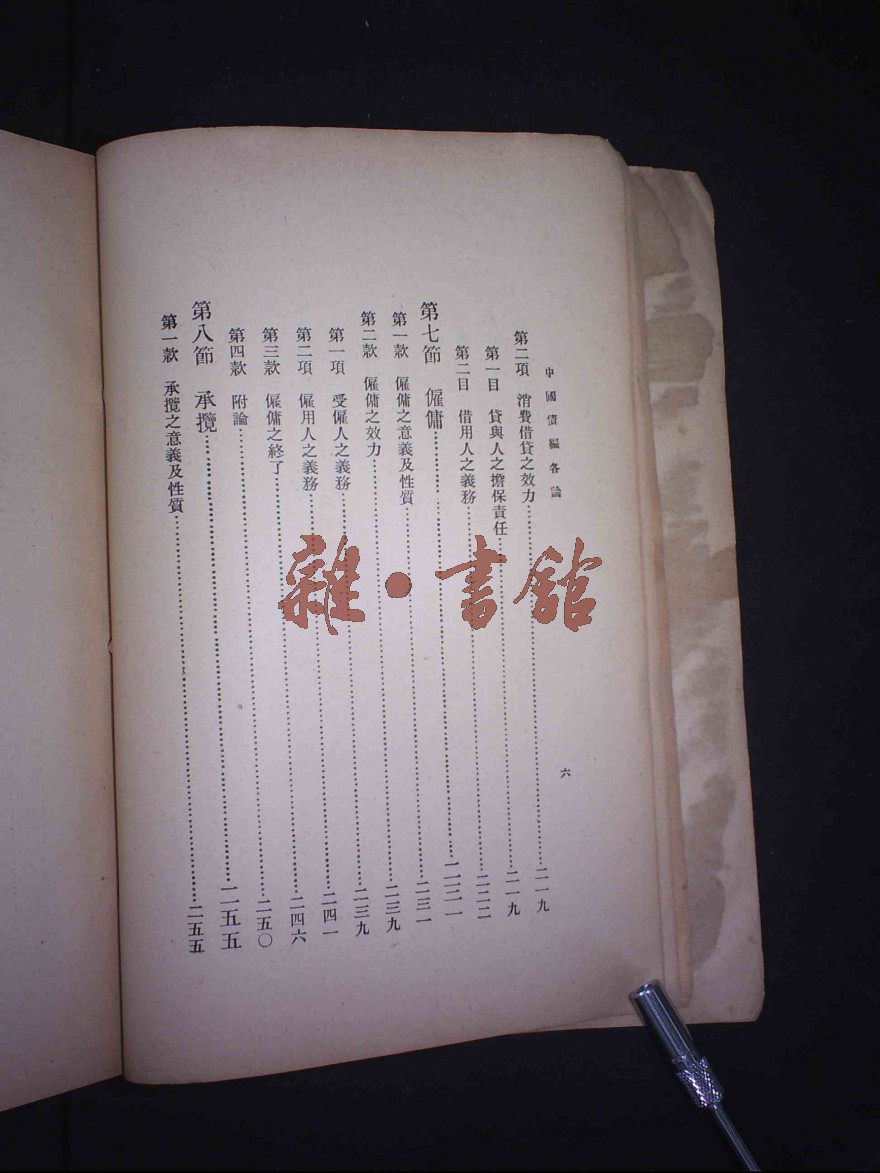 中國債編各論
六
第二項 消費借貸之效力……二一九
第一目 貸與人之擔保責任……二一九
第二目 借用人之義務……二二二
第七節 僱傭……二三一
第一款 僱傭之意義及性質……二三一
第二款 僱傭之效力……二三九
第一項 受僱人之義務……二三九
第二項 僱用人之義務……二四一
第三款 僱傭之終了……二四六
第四款 附論……二五〇
第八節 承攬……二五五
第一款 承攬之意義及性質……二五五
雜·書館